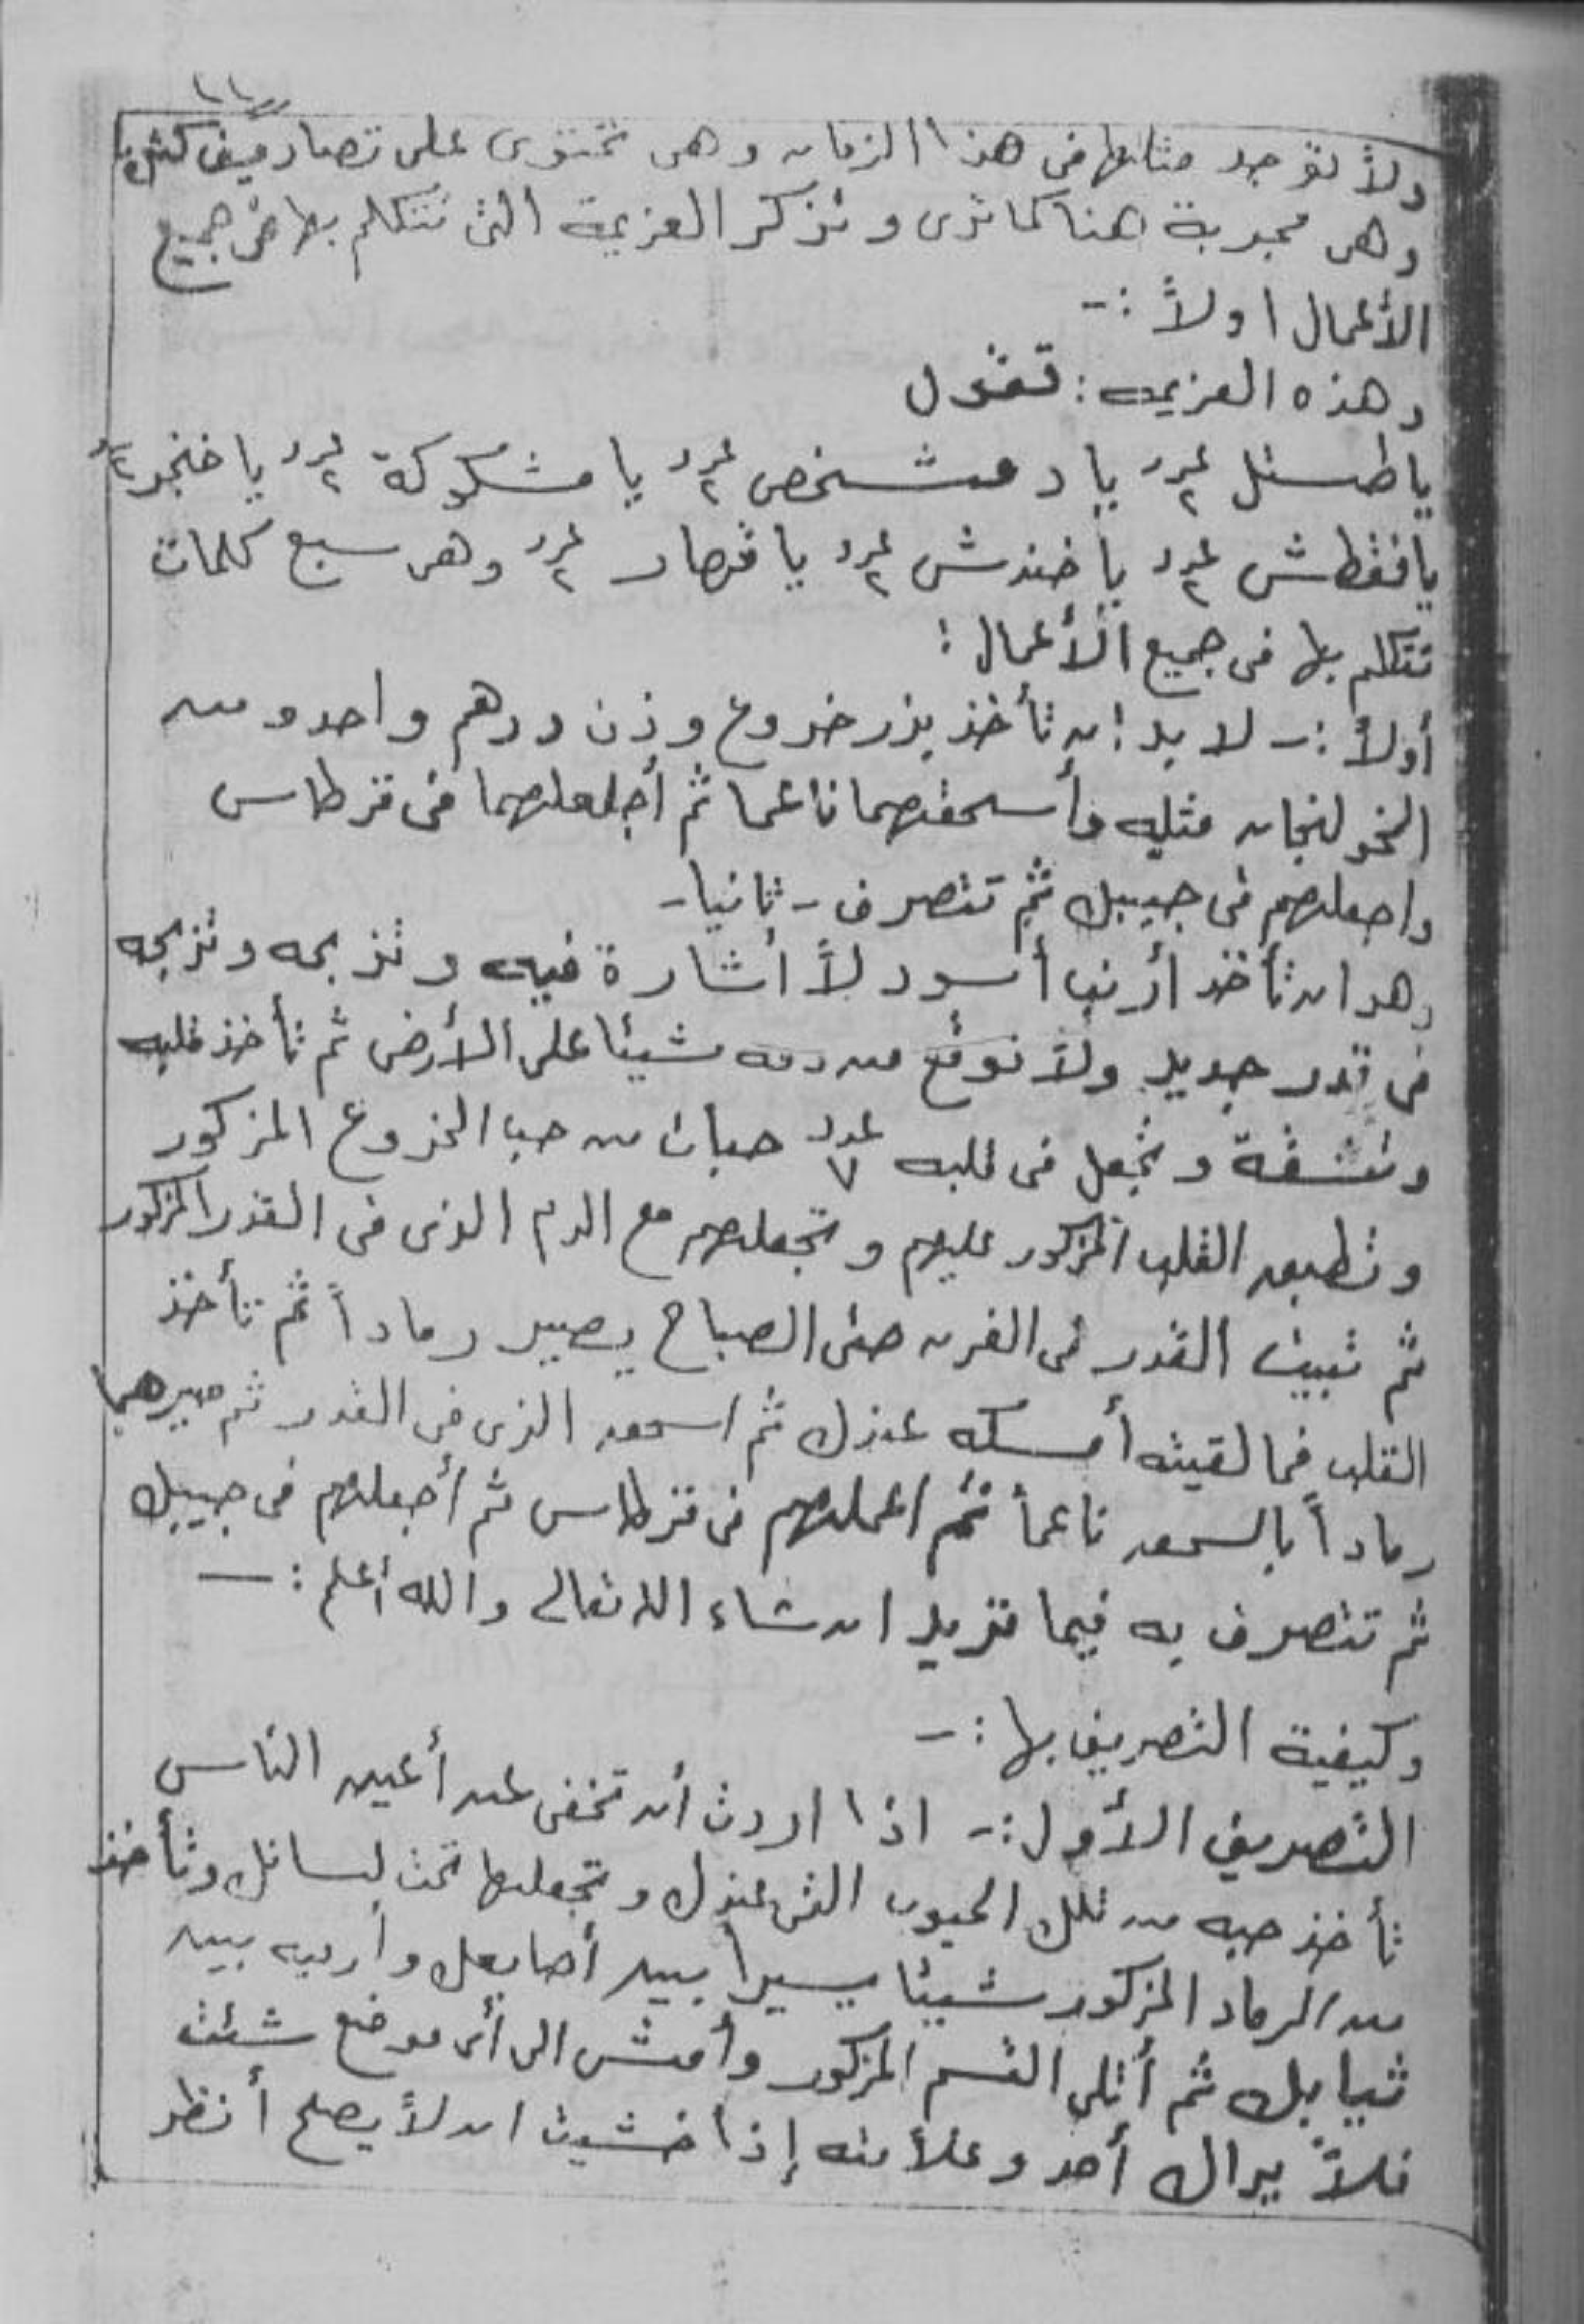 ولا توجد مثلها فى هذا الزمان وهى تحتوى على تصاريف كثيرة
وهى مجربة هنا كما ترى ونذكر العزيمة التى تتكلم بها فى جميع
الأعمال اولاً :-
وهذه العزيمه : تقول
ياطسئل عدد ٢ يا دمشخص عدد ٢ يا مشكوكة عدد ٢ يا خنجر
يافقطش عدد ٢ يا خندش عدد ٢ يا قصار عدد ٢ وهى سبع كلمات
تتكلم بها فى جميع الأعمال :
أولاً :- لا بد ان تأخذ بذر خروع وزن درهم واحد ومن
الخولنجان مثليه وأسحقهما ناعما ثم أجلعلهما فى قرطاس
واجعلهم فى جيبك ثم تتصرف - ثانيا -
وهو ان تأخذ أرنب أسود لا أشارة فيه وتذبحه وتذبحه
فى قدر جديد ولا توقع من دمه شيئا على الأرض ثم تأخذ قلبه
وتشقة وتجعل فى قلبه عدد ٧ حبات من حب الخروع المذكور
وتطبق القلب المذكور عليهم وتجعلهم مع الدم الذى فى القدر المذكور
ثم تبيت القدر فى الفرن حتى الصباح يصير رماداً ثم تأخذ
القلب فما لقيته أمسكه عندك ثم اسحق الذى فى القدر ثم صيرهما
رماداً بالسحق ناعماً ثم اعملهم فى قرطاس ثم أجعلهم فى جيبك
ثم تتصرف به فيما تريد ان شاء الله تعالى والله أعلم :-
وكيفية التصريف بها :-
التصريف الأول :- اذا اردت أن تخفى عن أعين الناس
تأخذ حبه من تلك الحبوب التى عندك وتجعلها تحت لسانك وتأخذ
من الرماد المذكور شيئا يسيرا بين أصابعك وارميه بين
ثيابك ثم أتلى القسم المذكور وأمشى الى أى موضع شئت
فلا يراك أحد وعلامته إذا خشيت ان لا يصلح أنظر